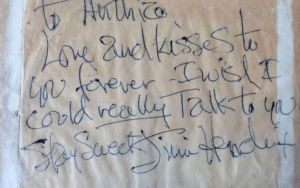 to Anthea
Love and kisses to
you forever - I wish I
could really Talk to you
Stay Sweet Jimi Hendrix